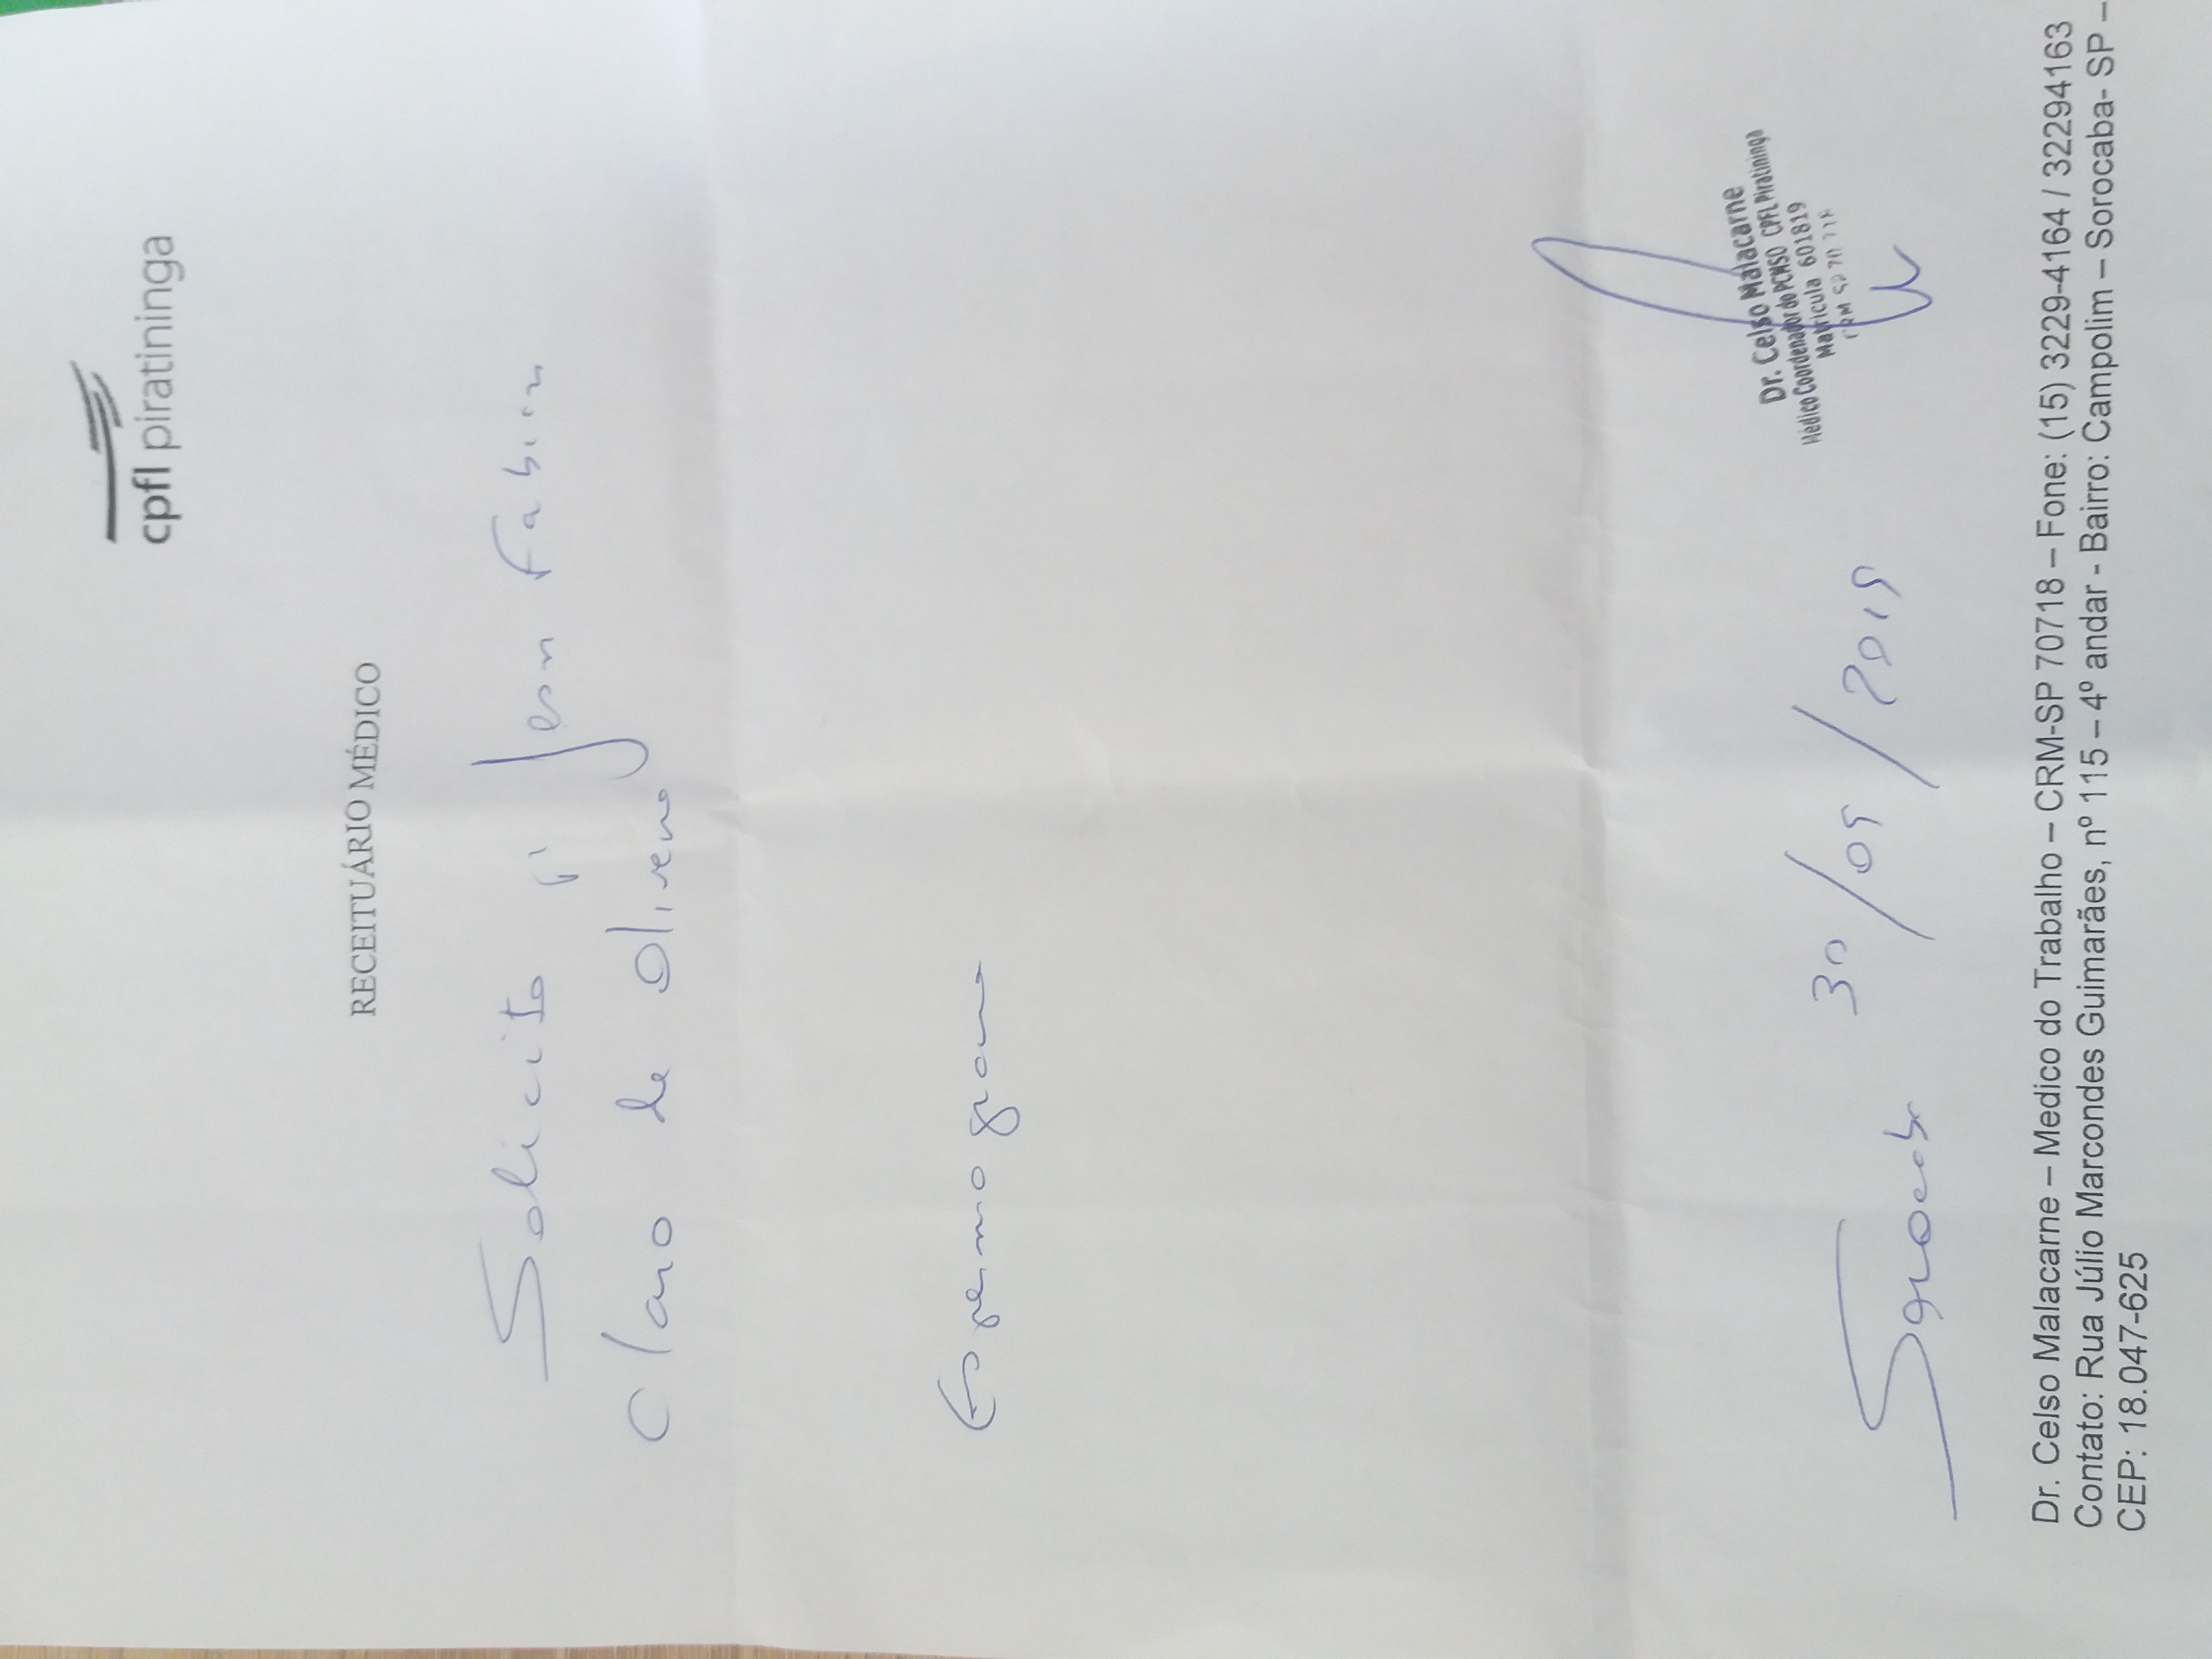 cpfl piratininga
RECEITUÁRIO MÉDICO
Solicito p/ Jean Fabian
Claro de Oliveira
Espermograma
Dr. Celso Malacarne
Médico Coordenador do PCMSO CPFL Piratininga
Matrícula 601819
CRM SP 70 718
Sorocaba 30/09/2019
Dr. Celso Malacarne – Medico do Trabalho – CRM-SP 70718 – Fone: (15) 3229-4164 / 32294163
Contato: Rua Júlio Marcondes Guimarães, nº 115 – 4º andar - Bairro: Campolim – Sorocaba- SP –
CEP: 18.047-625